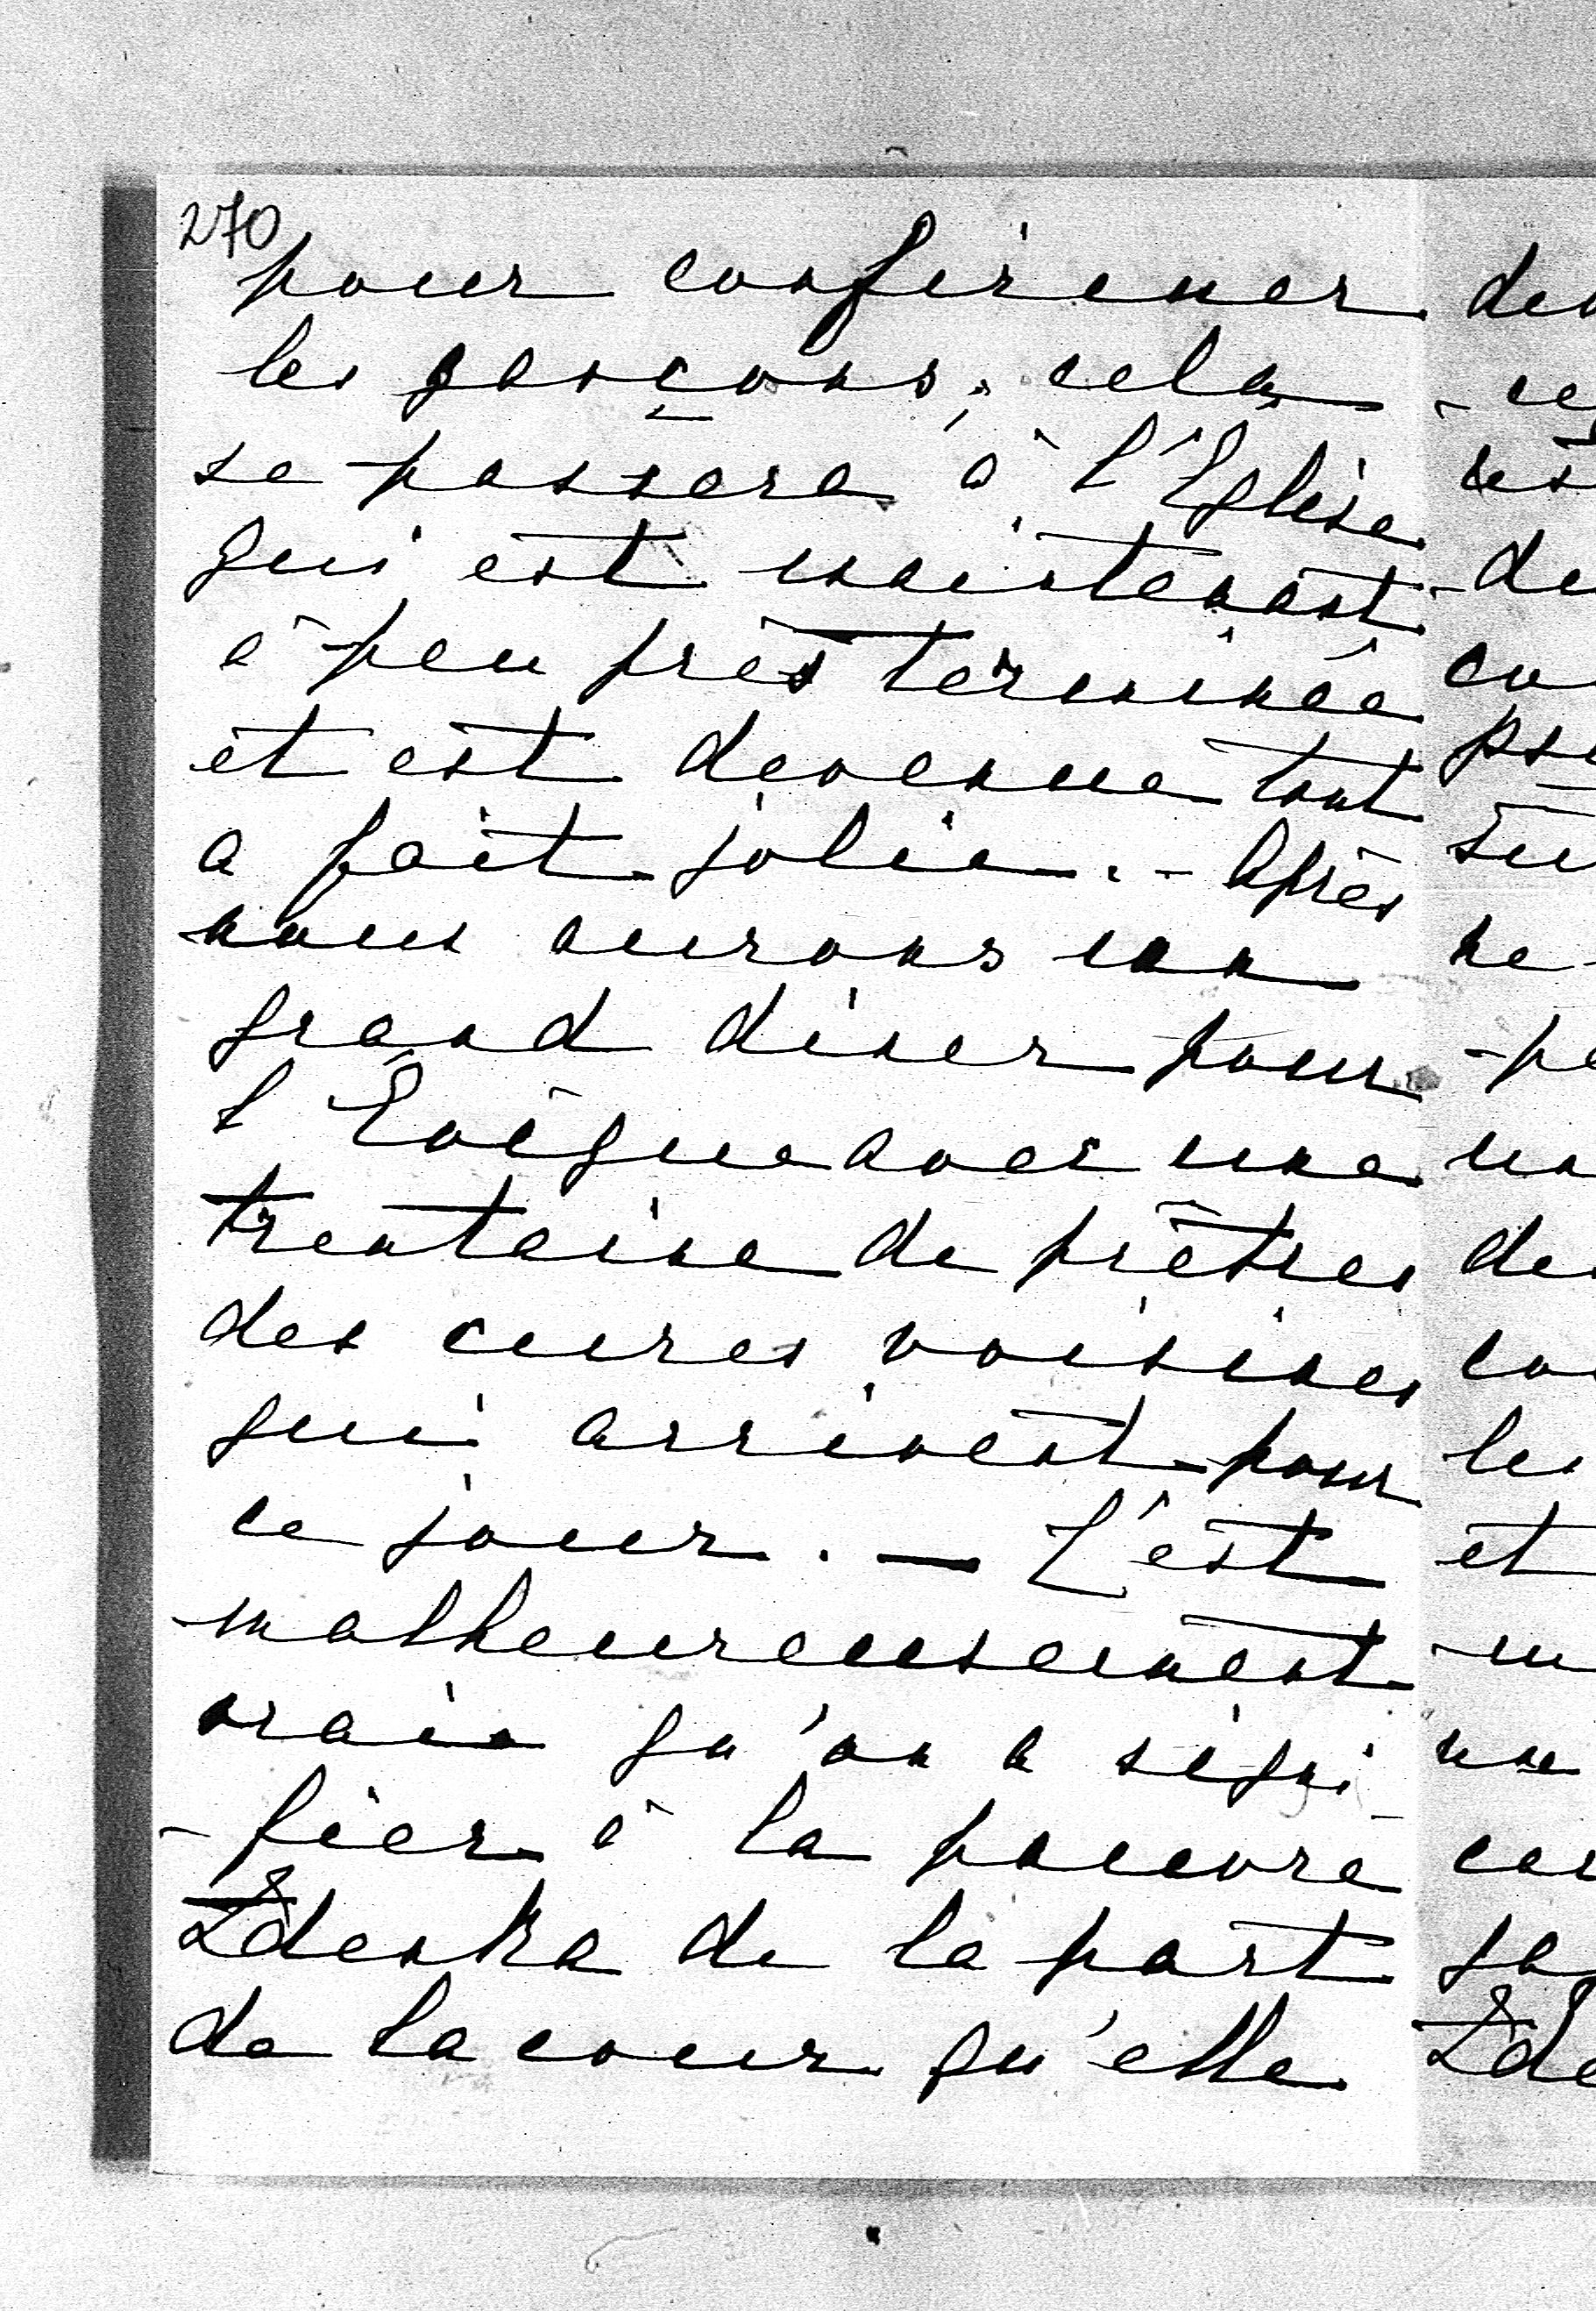 270
pour confirmer
les garçons, cela
se passera à l'Eglise
qui est maintenant
à peu près terminée
et est devenue tout
a fait jolie. - Après
nous aurons un
grand diner pour
l'Evêque avec une
trentaine de prêtres
des cures voisines
qui arrivent pour
ce jour. — C'est
malheureusement
vrai qu'on a signi-
-fier à la pauvre
Zdenka de la part
de la cour qu'elle